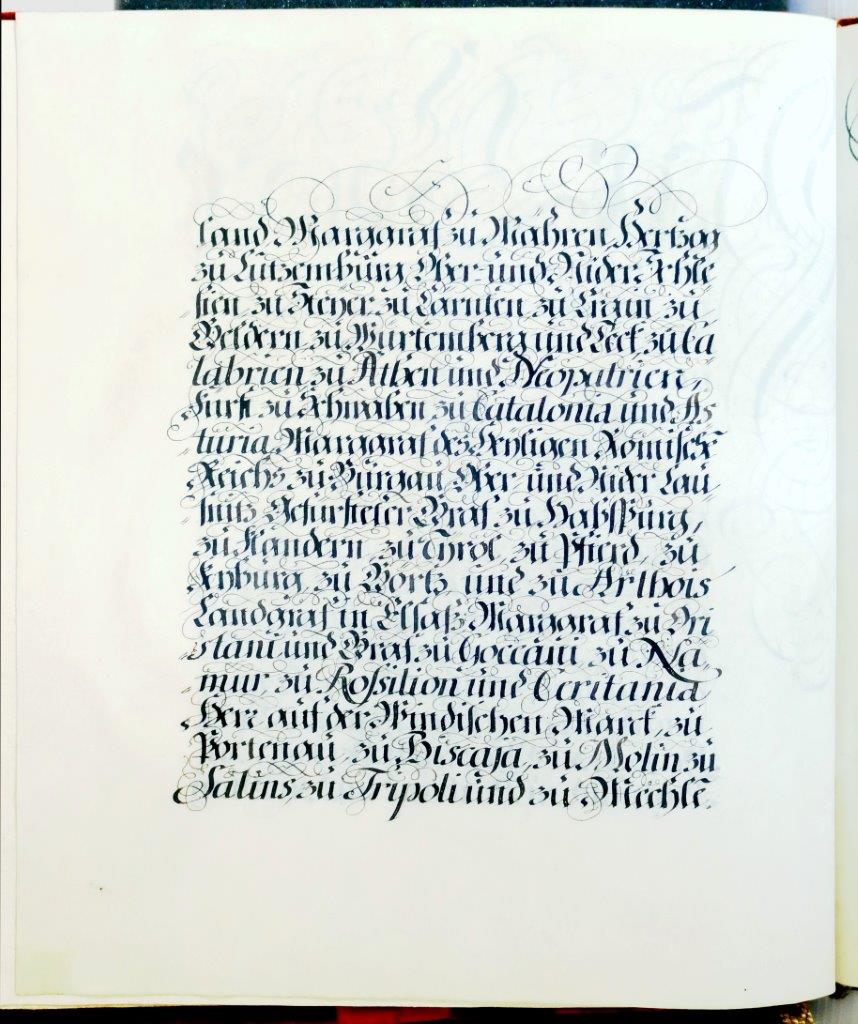 land Margaraf zu Mähren Hertzog
zu Lützemburg Ober- und Nider Schle
sien, zu Steyer, zu Carnten, zu Crain, zu
Geldern zu Wurtemberg und Teck, zu Ca
labrien, zu Athen und Neopatrien,
Fürst zu Schwaben, zu Catalonia und As
turia, Margaraf des Heyligen Römische
Reichs zu Burgau, Ober und Nider Lau
snitz, Gefürsteter Graf zu Habspurg,
zu Flandern, zu Tyrol, zu Pfierd, zu
Kyburg, zu Görtz, und zu Arthois
Landgraf in Elsaß, Margaraf zu Ori
stani und Graf zu Goccani, zu Na,
mur, zu Rossilion und Ceritania
Herr auf der Windischen Marck, zu
Portenau, zu Biscaja, zu Molin zu
Salins, zu Tripoli und zu Mechle